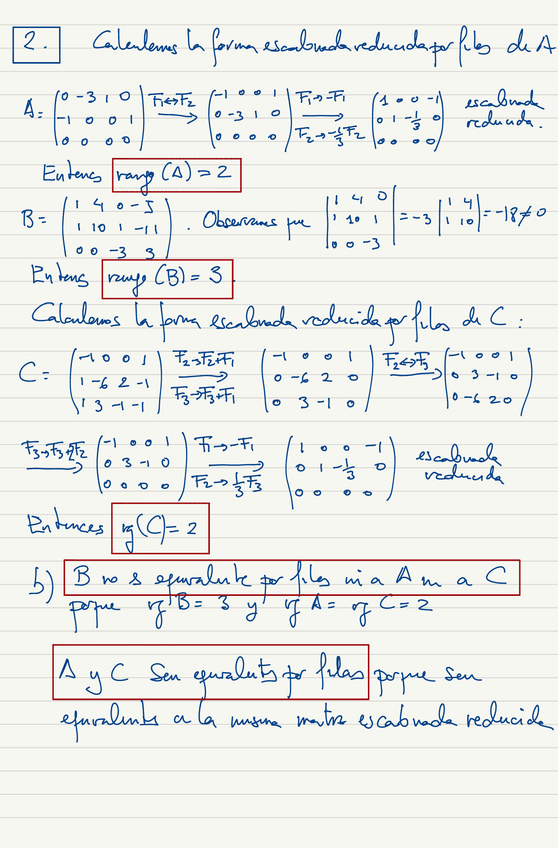 2. Calculemos la forma escalonada reducida por filas de A
A = (0 -3 1 0 / -1 0 0 1 / 0 0 0 0) F1↔F2 → (-1 0 0 1 / 0 -3 1 0 / 0 0 0 0) F1→-F1 F2→-1/3F2 → (1 0 0 -1 / 0 1 -1/3 0 / 0 0 0 0) escalonada reducida.
Entonces rango (A) = 2
B = (1 4 0 -5 / 1 10 1 -11 / 0 0 -3 3). Observamos que |1 4 0 / 1 10 1 / 0 0 -3| = -3 |1 4 / 1 10| = -18 ≠ 0
Entonces rango (B) = 3
Calculemos la forma escalonada reducida por filas de C:
C = (-1 0 0 1 / 1 -6 2 -1 / 1 3 -1 -1) F2→F2+F1 F3→F3+F1 → (-1 0 0 1 / 0 -6 2 0 / 0 3 -1 0) F2↔F3 → (-1 0 0 1 / 0 3 -1 0 / 0 -6 2 0)
F3→F3+2F2 → (-1 0 0 1 / 0 3 -1 0 / 0 0 0 0) F1→-F1 F2→1/3F3 → (1 0 0 -1 / 0 1 -1/3 0 / 0 0 0 0) escalonada reducida
Entonces rg(C) = 2
b) B no es equivalente por filas ni a A ni a C
porque rg B = 3 y rg A = rg C = 2
A y C Son equivalentes por filas porque son
equivalentes a la misma matriz escalonada reducida